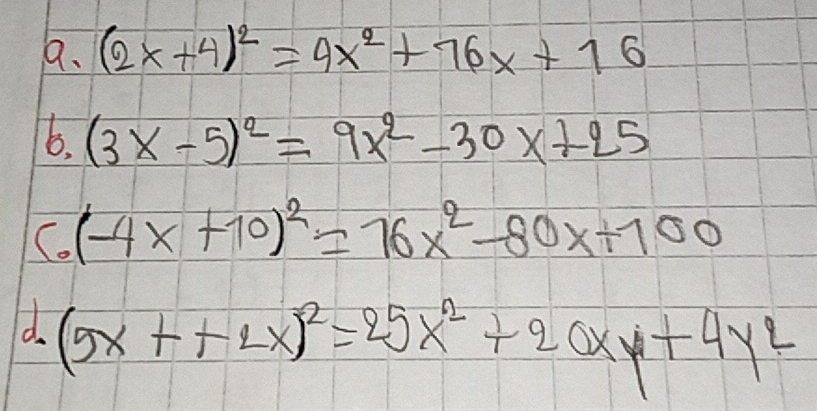 a. (2x+4)² = 4x² + 16x + 16
b. (3x-5)² = 9x² - 30x + 25
c. (-4x+10)² = 16x² - 80x + 100
d. (5x + + 2x)² = 25x² + 20xy + 4y²